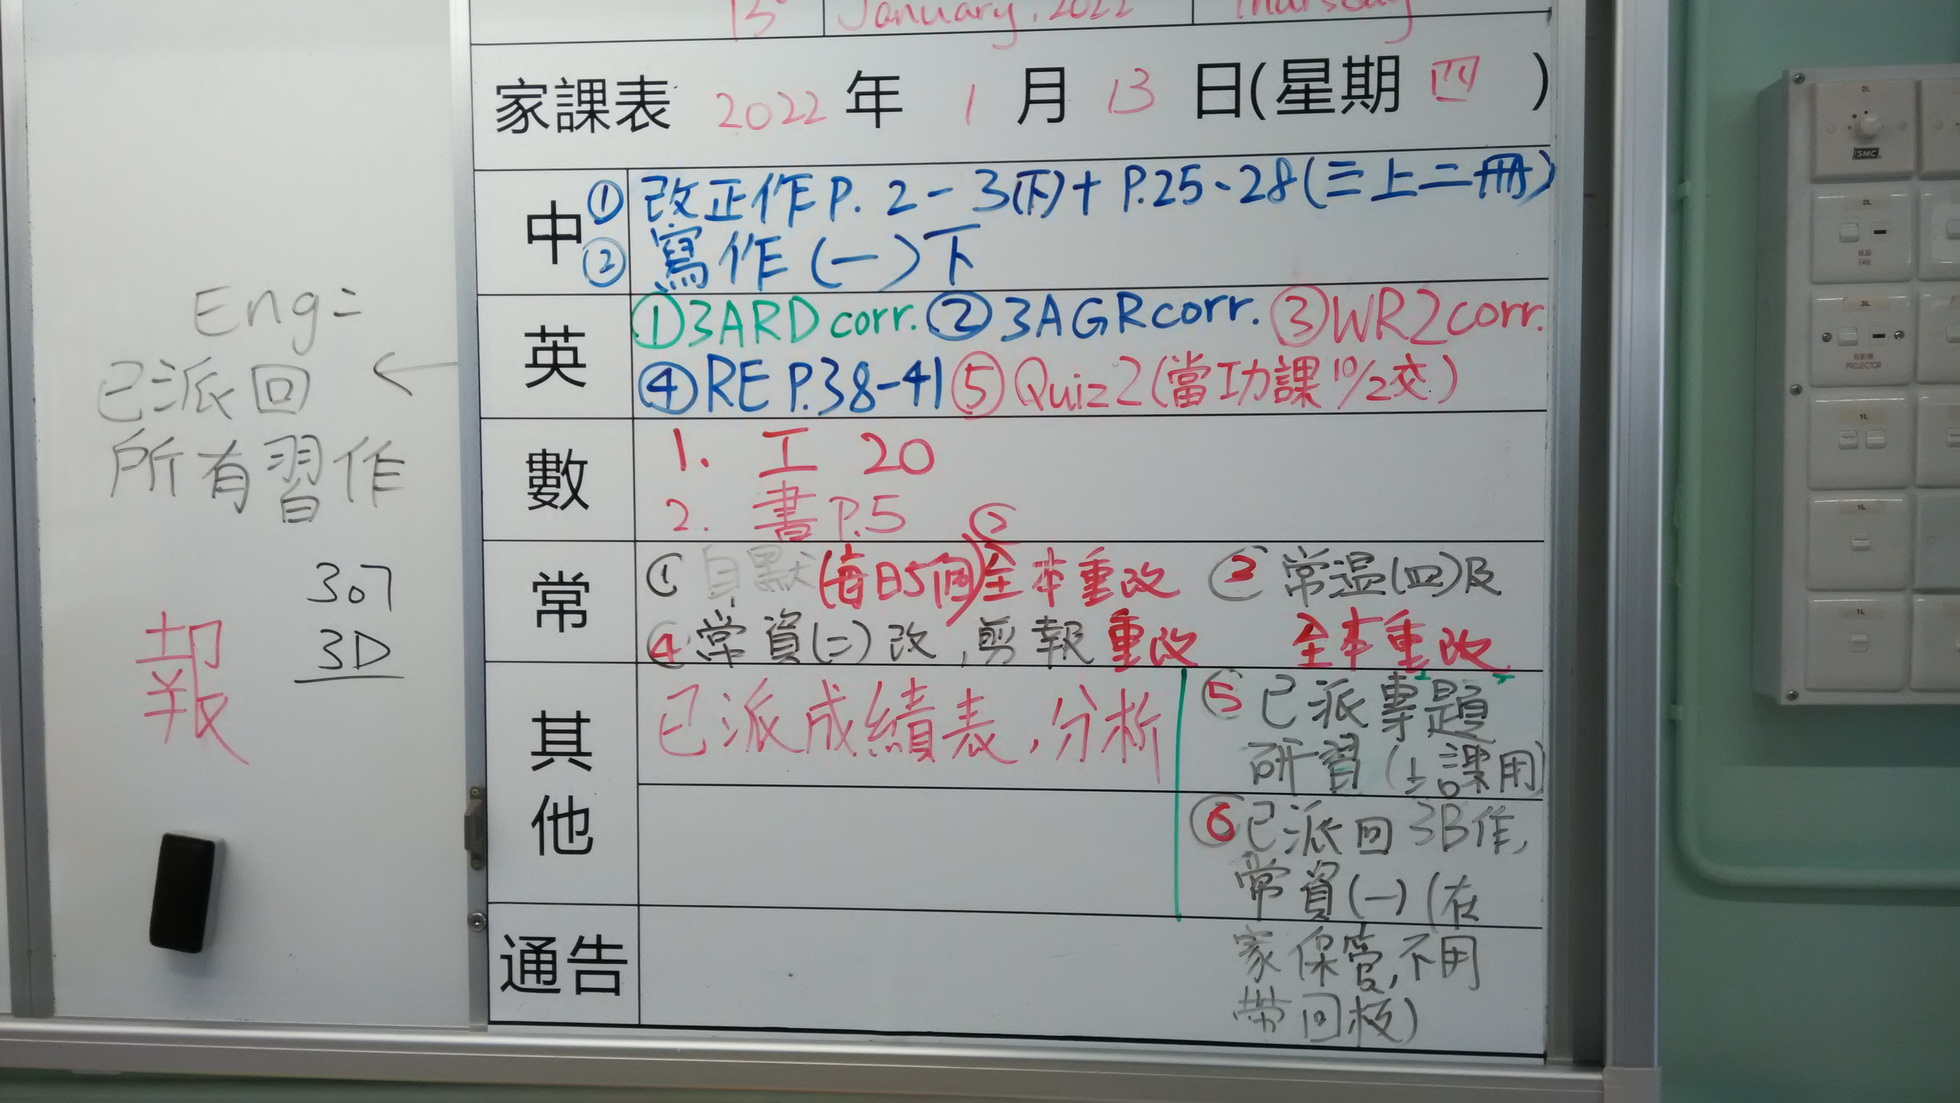 13 January, 2022 Thursday
家課表 2022 年 1 月 13 日(星期 四 )
中 ① 改正作 P. 2-3(下)+ P.25-28(三上二冊)
② 寫作(一)下
英 ①3ARD corr. ②3AGR corr. ③WR2 corr.
④RE P.38-41 ⑤Quiz 2(當功課10/2交)
數 1. 工 20
2. 書 P.5
常 ① 自默(每日5個) ② 全本重改 ③ 常温(四)及
④ 常資(二)改,剪報重改 全本重改
其他 已派成績表,分析
⑤ 已派專題
研習(上課用)
⑥ 已派回 3B作,
常資(一)(在
家保管,不用
帶回校)
通告
Eng=
已派回
所有習作
307
3D
報
SMC
PROJECTOR